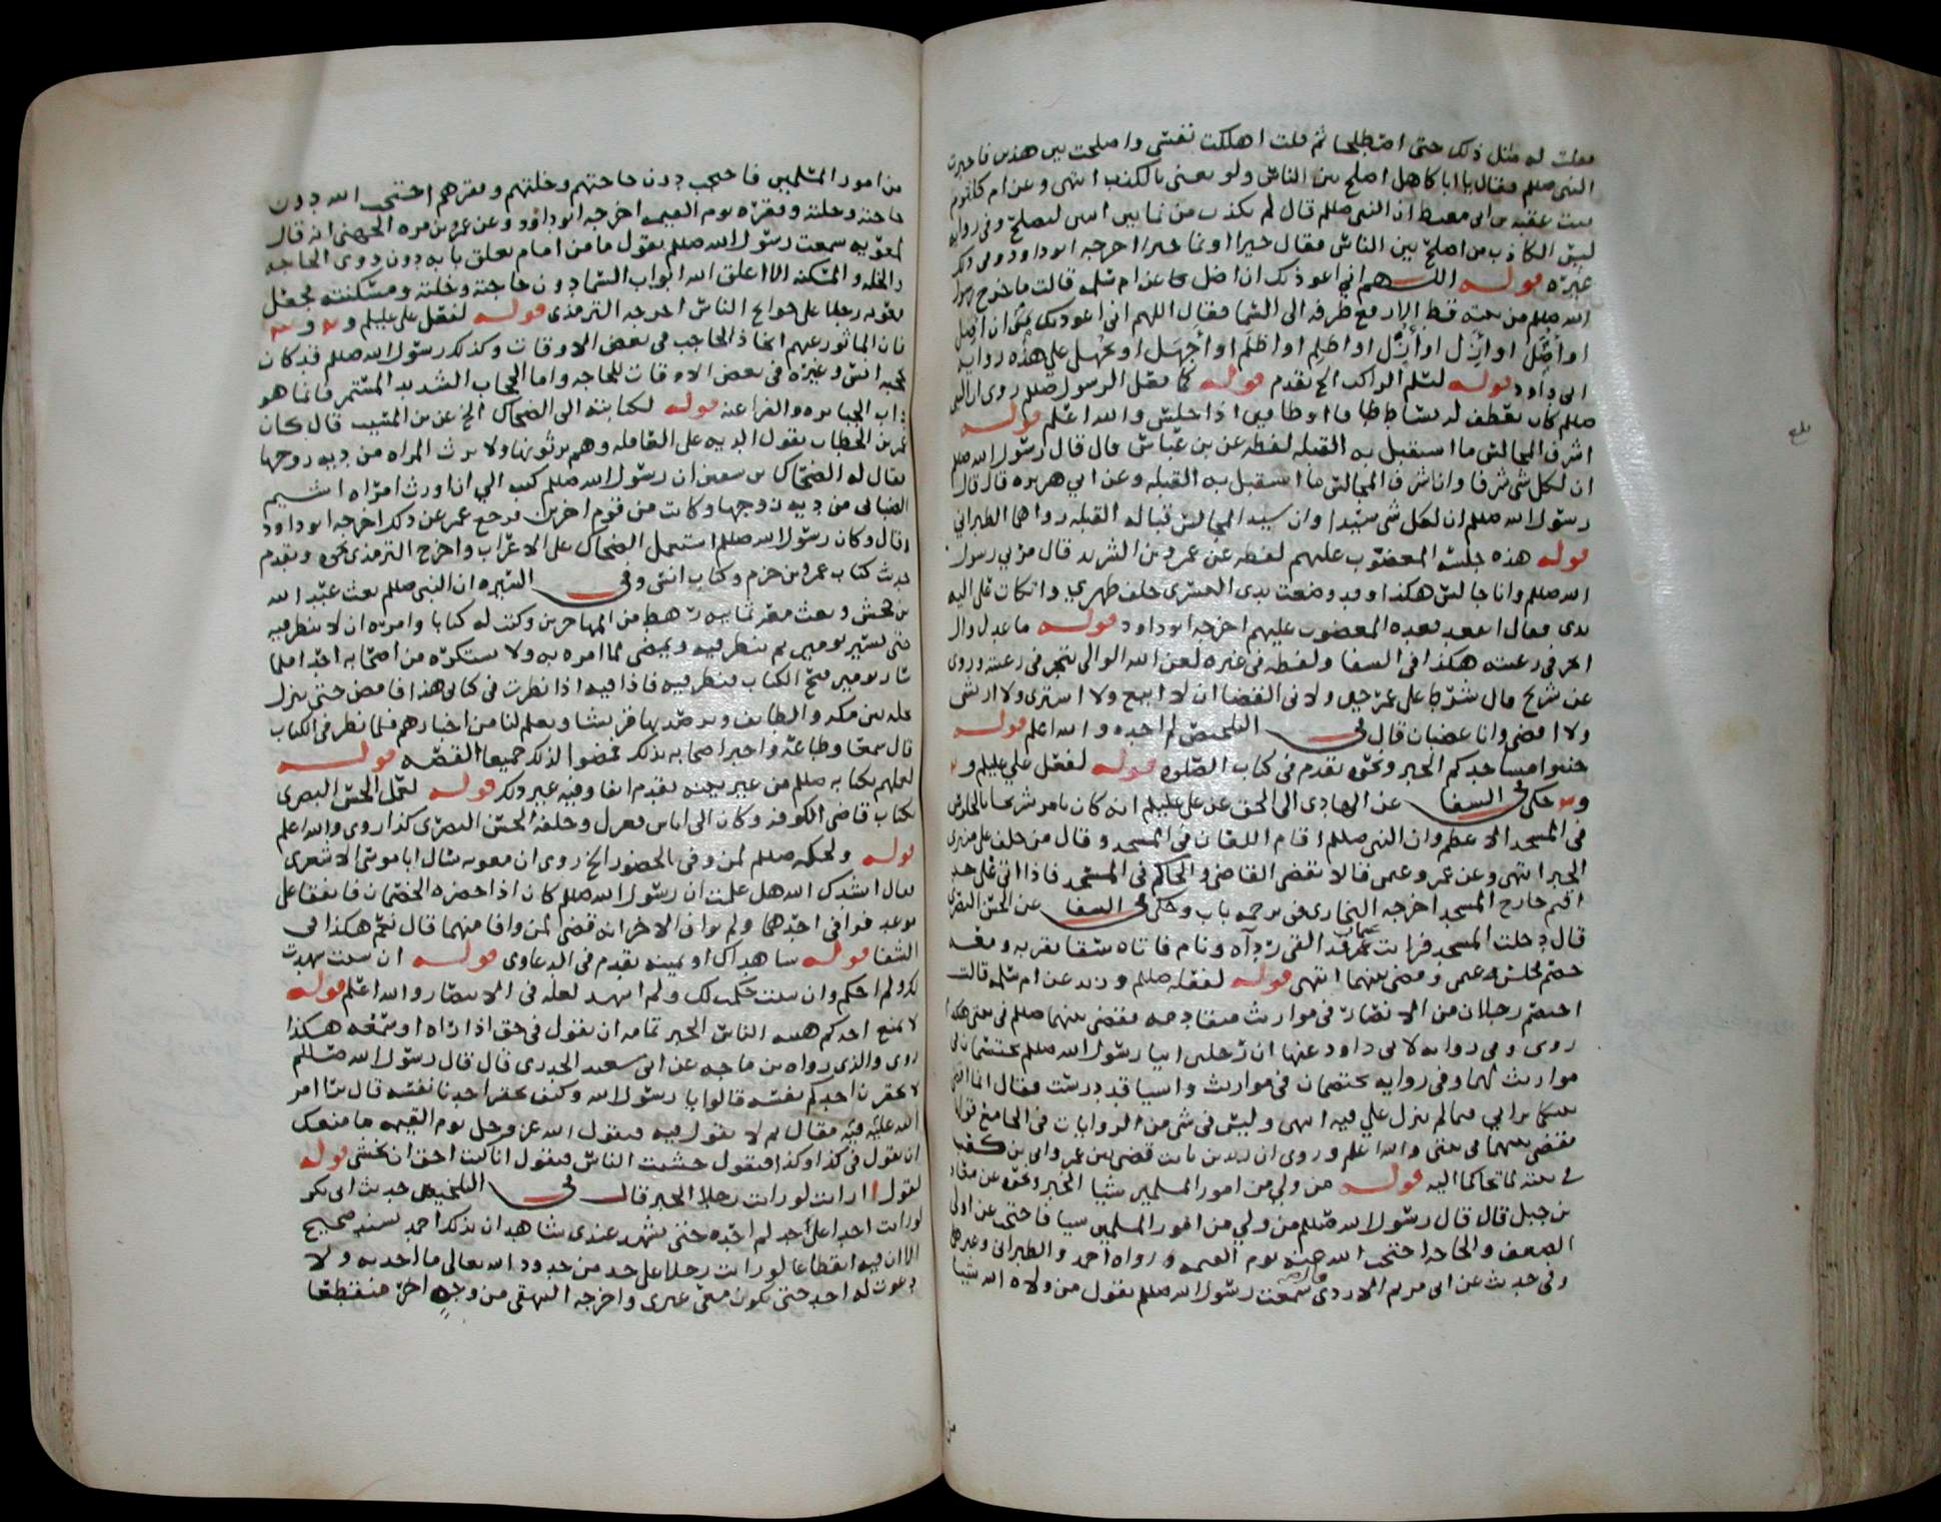 فقلت له مثل ذلك حتى اصطلحا ثم قلت اهلكت نفسي واصلحت بين هذين فاخبرت
النبي صللم فقال يا ابا كاهل اصلح بين الناس ولو يعني بالكذب انتهى وعن ام كلثوم
بنت عقبه بن ابي معيط ان النبي صللم قال لم يكذب من نما بين اثنين ليصلح وفي روايه
ليس الكاذب من اصلح بين الناس فقال خيرا او نما خيرا اخرجه ابو داود وفي ذلك
غيره قوله اللهم اني اعوذ بك ان اضل عن ام سلمه قالت ما خرج رسول
الله صللم من بيته قط الا رفع طرفه الى السما فقال اللهم اني اعوذ بك ان اضل
او أضل او أزل او أزل او اظلم او اظلم او أجهل او يجهل علي هذه روايه
ابي داود قوله لسلم الراكب الخ تقدم قوله كما فعل الرسول صللم روي ان النبي
صللم كان يعطف له بساط اذا جلس والله اعلم قوله
اشرف المجالس ما استقبل به القبله لفظه عن بن عباس قال قال رسول الله صللم
ان لكل شي شرفا وان اشرف المجالس ما استقبل به القبله وعن ابي هريره قال قال
رسول الله صللم ان لكل شي سيدا وان سيد المجالس قبالة القبله رواهما الطبراني
قوله هذه جلسة المغضوب عليهم لفظه عن عمرو بن الشريد قال مر بي رسول
الله صللم وانا جالس هكذا وقد وضعت يدي اليسرى خلف ظهري واتكات على الية
يدي فقال اتقعد قعدة المغضوب عليهم اخرجه ابو داود قوله ما عدل وال
اتجر في رعيته هكذا في الشفا ولفظه في غيره لعن الله الوالي يتجر في رعيته وروي
عن شريح قال شرط علي عمر حين ولاني القضا ان لا ابيع ولا اشتري ولا ارتشي
ولا اقضي وانا غضبان قال في التلخيص لم اجده والله اعلم قوله
جنبوا مساجدكم الخبر ونحوه تقدم في كتاب الصلوه قوله لفعل علي عليلم و
و حكى في الشفا عن الهادي الى الحق عن علي عليلم انه كان يامر شريحا بالجلوس
في المسجد الاعظم وان النبي صللم اقام اللعان في المسجد وقال من حلف على منبري
الخبر انتهى وعن عمر وعمن قالا يقضي القاضي والحاكم في المسجد فاذا اتى على حد
اقيم خارج المسجد اخرجه البخاري في ترجمه باب وحكى في الشفا عن الحسن البصري
قال دخلت المسجد فرايت عثمان قد القى ردآه ونام فاتاه سقا بقربه ومعه
خصم فجلس عثمن وقضى بينهما انتهى قوله لفعله صللم وزيد عن ام سلمه قالت
اختصم رجلان من الانصار في مواريث متقادمه فقضى بينهما صللم في بيتي هكذا
روي وفي روايه لابي داود عنها ان رجلين اتيا رسول الله صللم يختصمان في
مواريث لهما وفي روايه يختصمان في مواريث واشيا قد درست فقال انما اقضي
بينكما برايي فيما لم ينزل علي فيه انتهى وليس في شي من الروايات في الجامع قولها
فقضى بينهما في بيتي والله اعلم وروي ان زيد بن ثابت قضى بين عمر وابي بن كعب
في بيته لما تحاكما اليه قوله من ولي من امور المسلمين شيا الخبر ونحوه عن معاذ
بن جبل قال قال رسول الله صللم من ولي من امور المسلمين شيا فاحتجب عن اولي
الضعف والحاجه احتجب الله عنه يوم القيمه رواه احمد والطبراني وغيرهما
وفي حديث عن ابي مريم الازدي سمعت رسول الله صللم يقول من ولاه الله شيا
من امور المسلمين فاحتجب دون حاجتهم وخلتهم وفقرهم احتجب الله دون
حاجته وخلته وفقره يوم القيمه اخرجه ابو داود وعن عمرو بن مره الجهني انه قال
لمعويه سمعت رسول الله صللم يقول ما من امام يغلق بابه دون ذوي الحاجه
والخله والمسكنه الا اغلق الله ابواب السما دون حاجته وخلته ومسكنته فجعل
معويه رجلا على حوايج الناس اخرجه الترمذي قوله لفعل علي عليلم و
فان الماثور عنهم اتخاذ الحاجب في بعض الاوقات وكذلك رسول الله صللم قد كان
يحجبه انس وغيره في بعض الاوقات للحاجه واما الحجاب الشديد المستمر فانما هو
داب الجبابره والفراعنه قوله لكتابته الى الضحاك الخ عن بن المسيب قال كان
عمر بن الخطاب يقول الديه على العاقله وهم يرثونها ولا يرث المراه من ديه زوجها
فقال له الضحاك بن سفين ان رسول الله صللم كتب الي ان اورث امراه اشيم
الضبابي من ديه زوجها وكانت من قوم اخرين فرجع عمر عن ذلك اخرجه ابو داود
وقال وكان رسول الله صللم استعمل الضحاك على الاعراب واخرج الترمذي نحوه وتقدم
حديث كتاب عمرو بن حزم وكتاب انس وفي السيره ان النبي صللم بعث عبد الله
بن جحش وبعث معه ثمانيه رهط من المهاجرين وكتب له كتابا وامره ان لا ينظر فيه
حتى يسير يومين ثم ينظر فيه ويمضي لما امره به ولا يستكره من اصحابه احدا فلما
سار يومين فتح الكتاب فنظر فيه فاذا فيه اذا نظرت في كتابي هذا فامض حتى تنزل
نخله بين مكه والطايف وترصد بها قريشا وتعلم لنا من اخبارهم فلما نظر في الكتاب
قال سمعا وطاعة واخبر اصحابه بذلك فمضوا لذلك جميعا القصه قوله
لعملهم بكتابه صللم من غير بينه تقدم انفا وفيه غير ذلك قوله لعمل الحسن البصري
بكتاب قاضي الكوفه وكان الى اياس فعزل وخلفه الحسن البصري كذا روي والله اعلم
قوله ولحكمه صللم لمن وفى بالحضور الخ روي ان معويه سال ابا موسى الاشعري
فقال انشدك الله هل علمت ان رسول الله صللم كان اذا حضره الخصمان فاتفقا على
موعد فوافى احدهما ولم يواف الاخر انه قضى لمن وافا منهما قال نعم هكذا في
الشفا قوله شاهداك او يمينه تقدم في الدعاوى قوله ان شئت شهدت
لك ولم احكم وان شئت حكمت لك ولم اشهد لعله في الانتصار والله اعلم قوله
لا يمنع احدكم هيبة الناس الخبر تمامه ان يقول في حق اذا راه او سمعه هكذا
روي والذي رواه بن ماجه عن ابي سعيد الخدري قال قال رسول الله صللم
لا يحقرن احدكم نفسه قالوا يا رسول الله وكيف يحقر احدنا نفسه قال يرا امر
الله عليه فيه مقال ثم لا يقول فيه فيقول الله عز وجل يوم القيمه ما منعك
ان تقول في كذا وكذا فيقول خشيت الناس فيقول انا كنت احق ان تخشى قوله
لقول ارايت لو رايت رجلا الخبر قال في التلخيص حديث ابي بكر
لو رايت احدا على حد لم احده حتى يشهد عندي شاهدان بذلك احمد بسند صحيح
الا ان فيه انقطاعا لو رايت رجلا على حد من حدود الله تعالى ما اخذته ولا
دعوت له احدا حتى يكون معي غيري واخرجه البيهقي من وجه اخر منقطعا